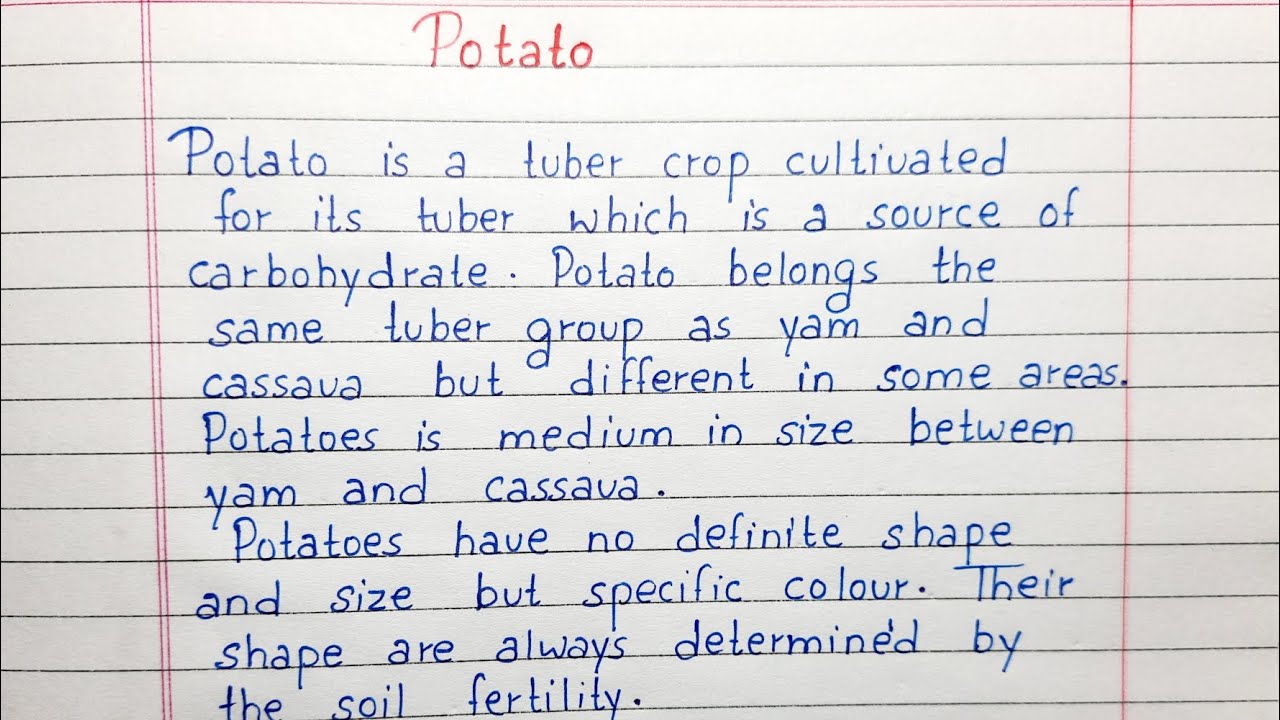 Potato
Potato is a tuber crop cultivated
for its tuber which is a source of
carbohydrate. Potato belongs the
same tuber group as yam and
cassava but different in some areas.
Potatoes is medium in size between
yam and cassava.
Potatoes have no definite shape
and size but specific colour. Their
shape are always determined by
the soil fertility.